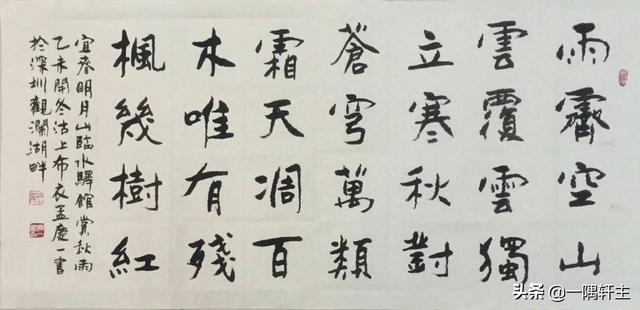 雨霽空山
雲覆雲獨
立寒秋對
蒼穹萬類
霜天凋百
木唯有殘
楓幾樹紅
宜春明月山臨水驛館賞秋雨
乙未開冬沽上布衣孟慶一書
於深圳觀瀾湖畔
头条 @一隅轩主